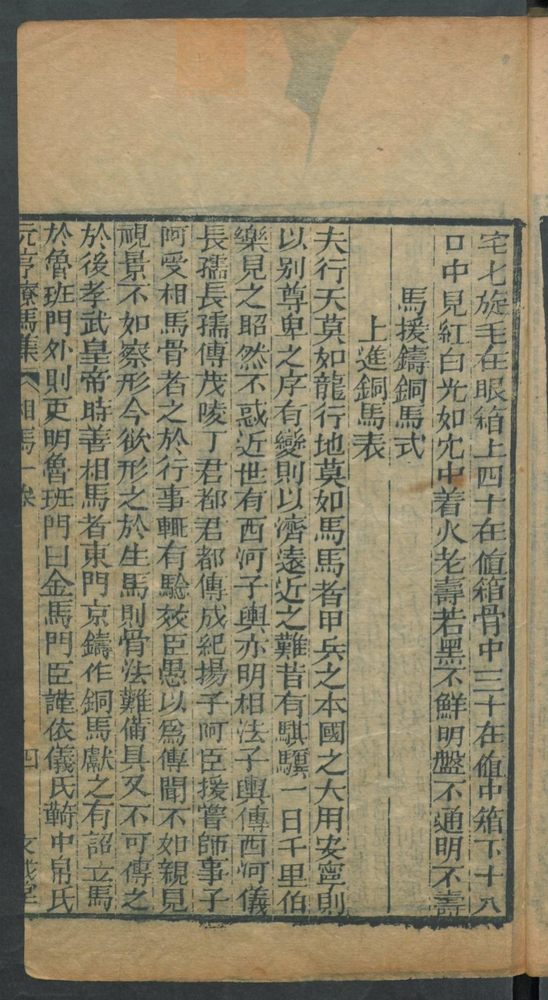 宅七旋毛在眼箱上四十在值箱骨中三十在值中箱下十八
口中見紅白光如穴中着火老壽若黑不鮮明盤不通明不壽
馬援鑄銅馬式
上進銅馬表
夫行天莫如龍行地莫如馬馬者甲兵之本國之大用安寧則
以别尊卑之序有變則以濟遠近之難昔有騏驥一日千里伯
樂見之昭然不惑近世有西河子輿亦明相法子輿傳西河儀
長孺長孺傳茂陵丁君都君都傳成紀揚子阿臣援嘗師事子
阿受相馬骨者之於行事輒有驗效臣愚以爲傳聞不如親見
視景不如察形今欲形之於生馬則骨法難備具又不可傳之
於後孝武皇帝時善相馬者東門京鑄作銅馬獻之有詔立馬
於魯班門外則更明魯班門曰金馬門臣謹依儀氏䩭中帛氏
元亨療馬集 相馬一卷 四